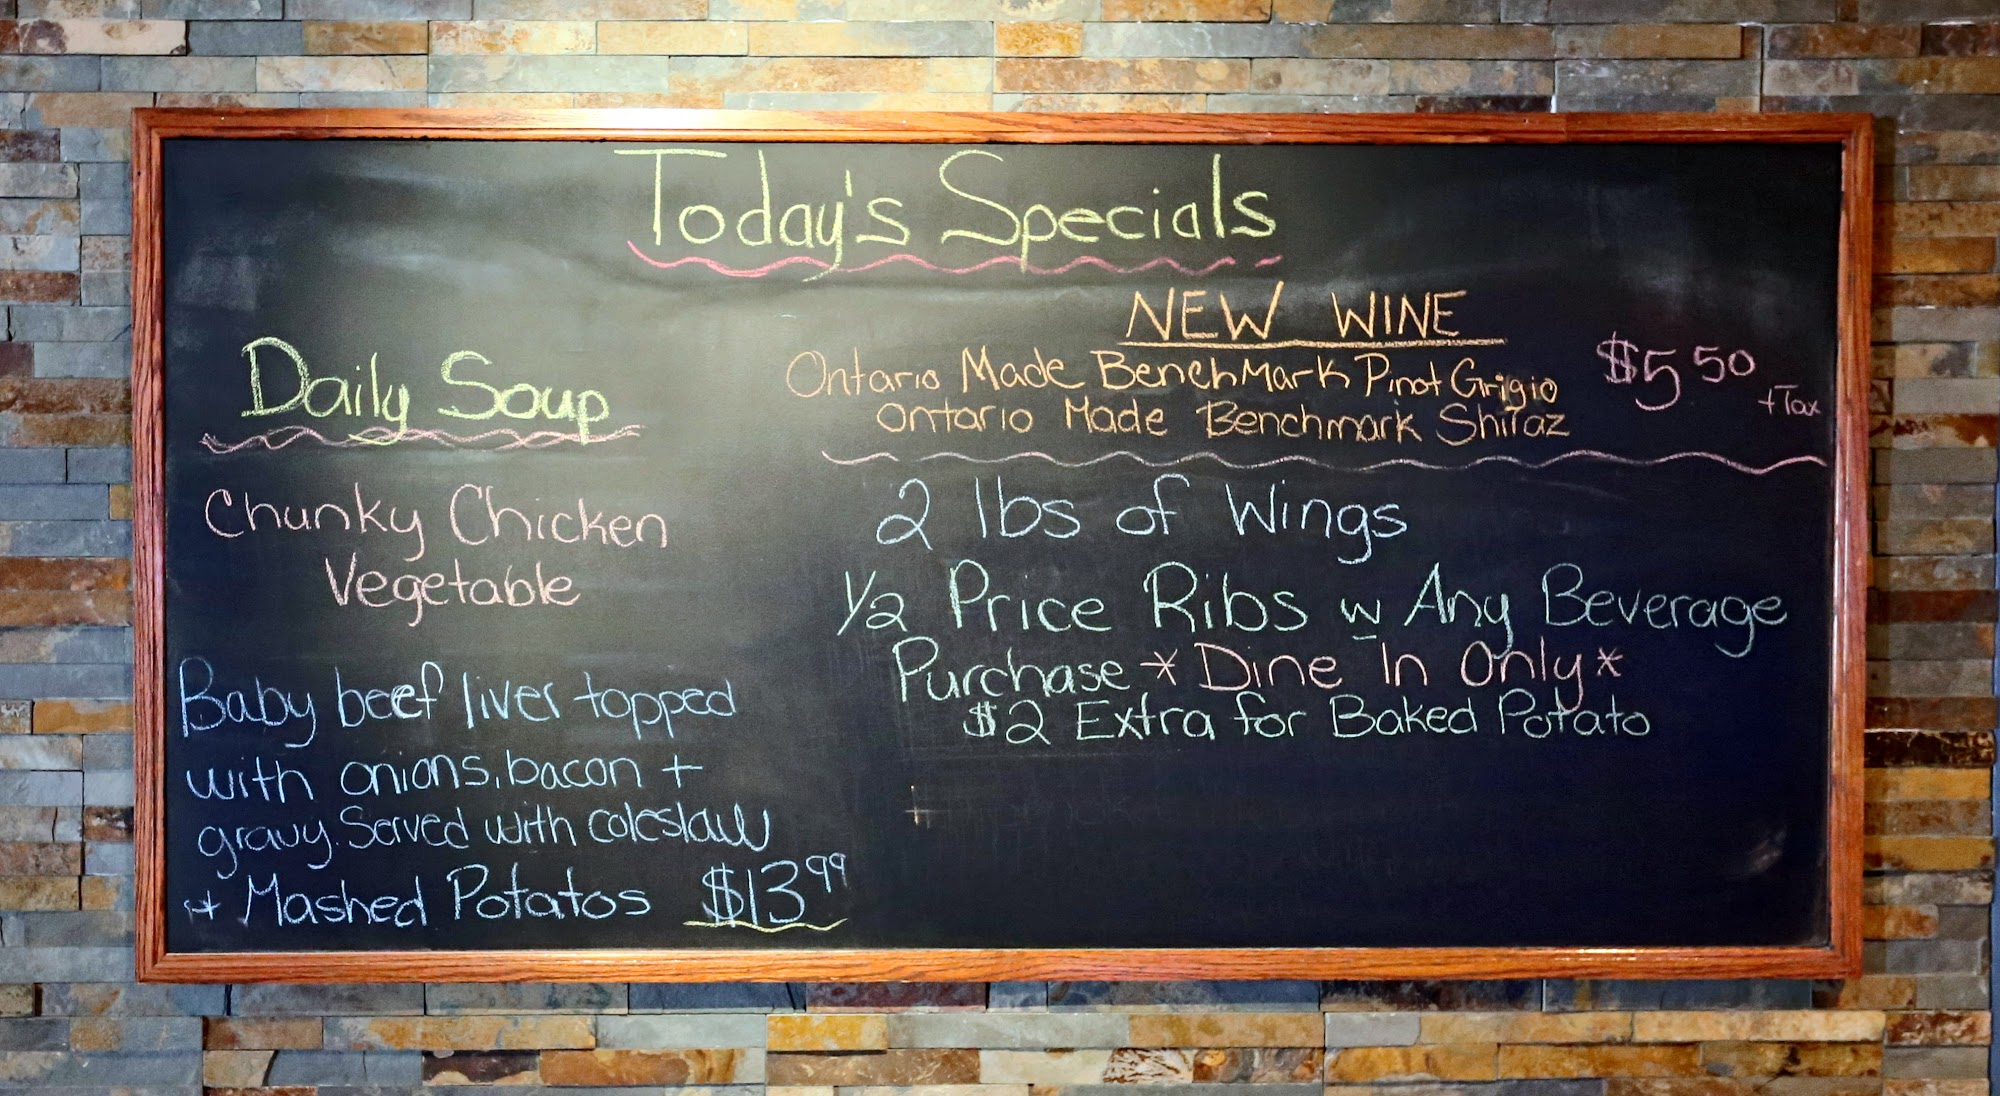 Today's Specials
Daily Soup
Chunky Chicken
Vegetable
Baby beef liver topped
with onions, bacon +
gravy. Served with coleslaw
+ Mashed Potatos $13.99
NEW WINE
Ontario Made BenchMark Pinot Grigio
Ontario Made Benchmark Shiraz
$5.50
+Tax
2 lbs of Wings
1/2 Price Ribs w Any Beverage
Purchase *Dine In Only*
$2 Extra for Baked Potato